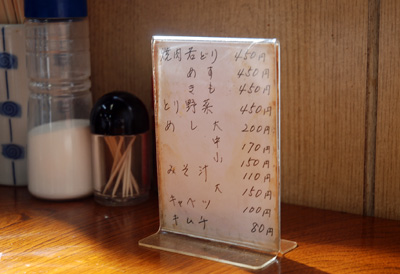 焼肉若どり 450円
めす 450円
きも 450円
とり野菜 450円
めし 大 200円
中 170円
小 150円
みそ汁 110円
大 150円
キャベツ 100円
キムチ 80円